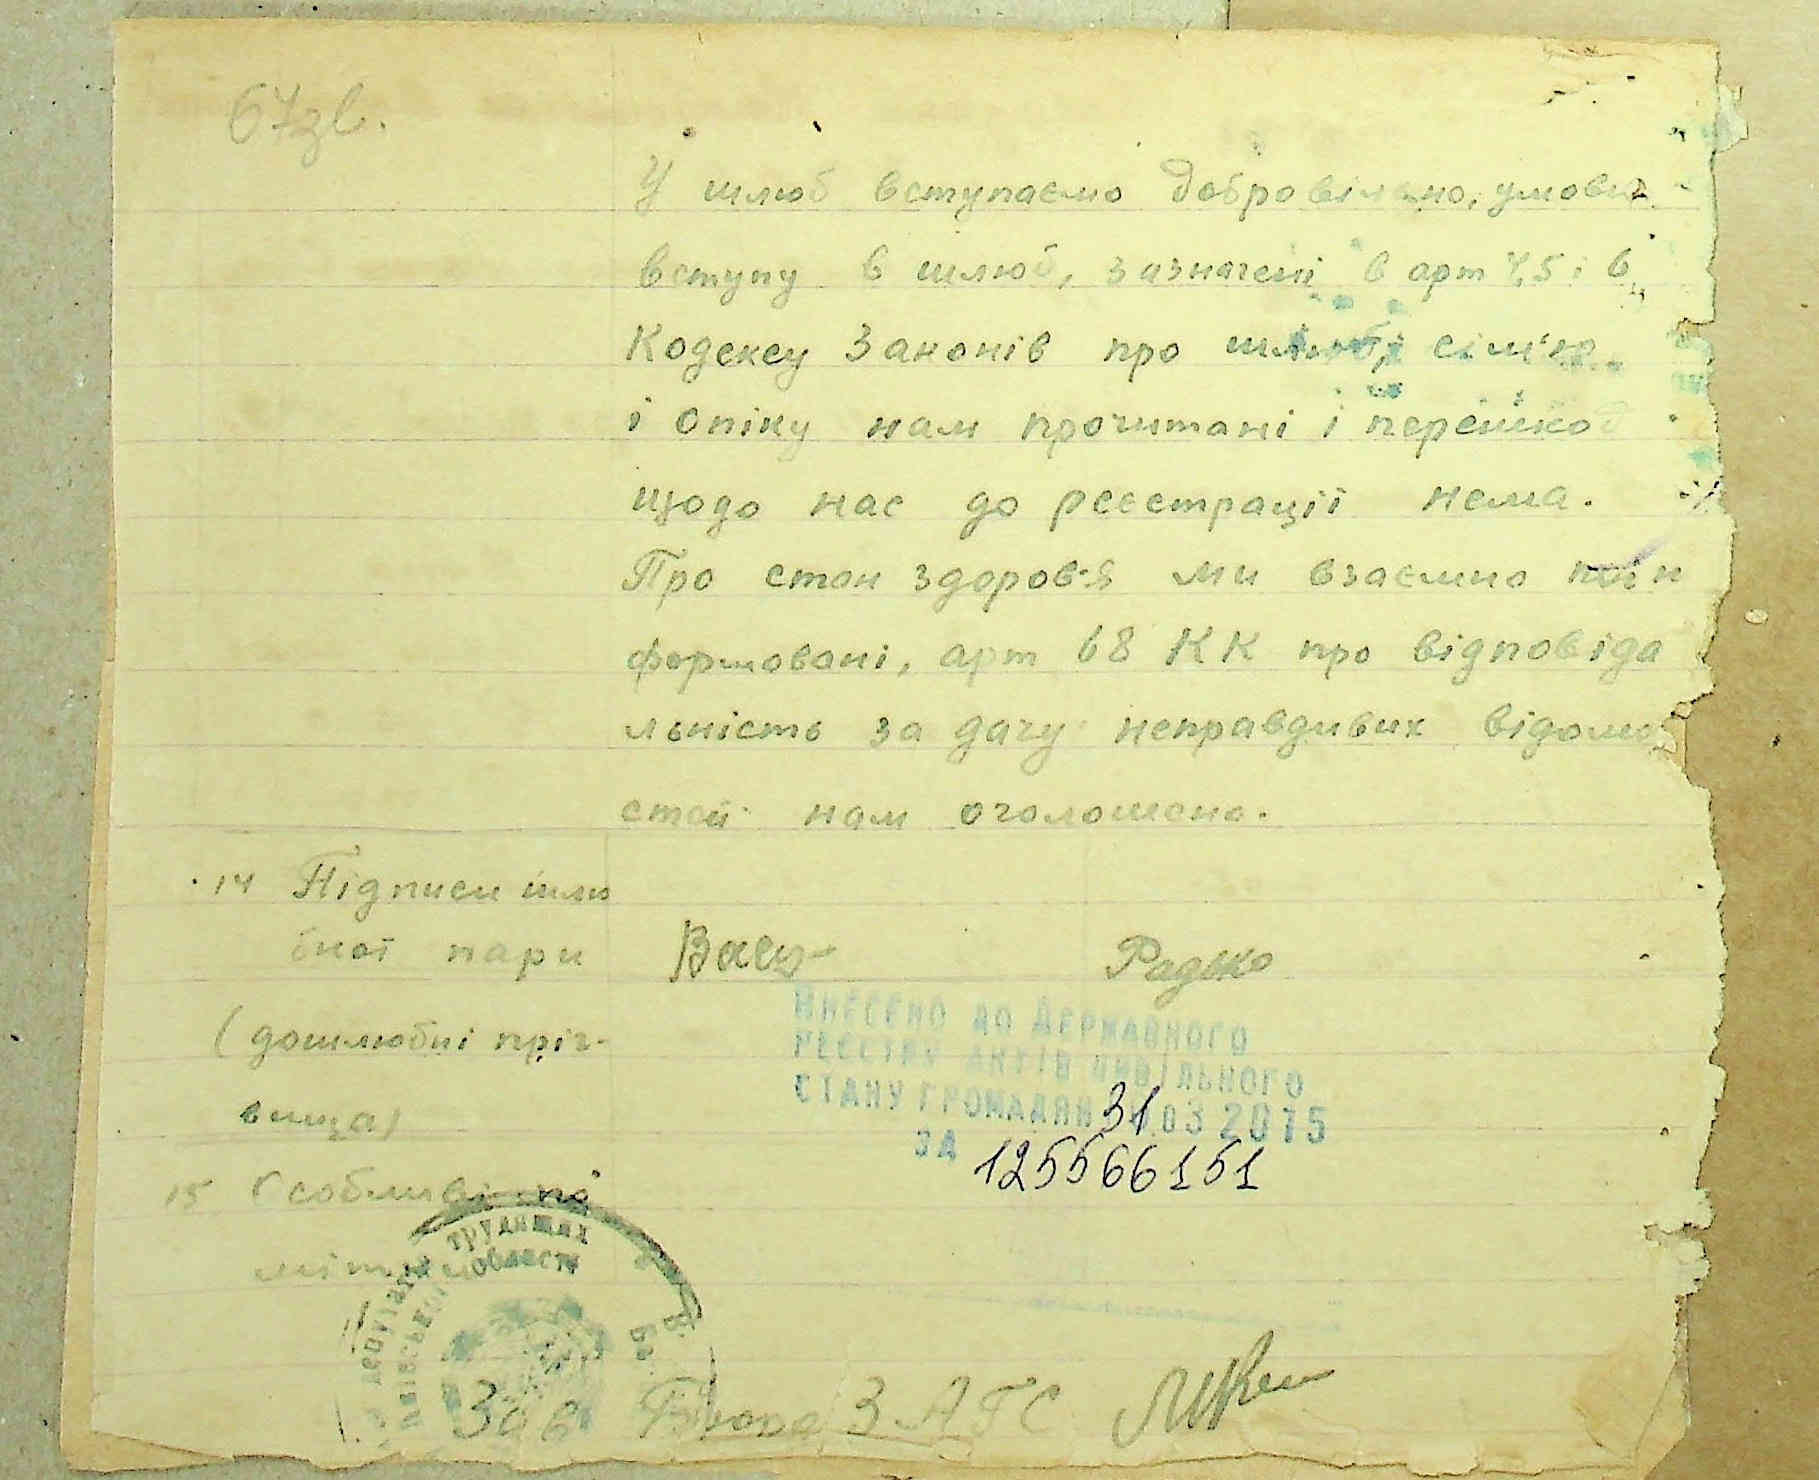 67зв.
У шлюб вступаємо добровільно, умови
вступу в шлюб, зазначені в арт 4,5 і 6
Кодексу Законів про шлюб, сім'ю
і опіку нам прочитані і перешкод
щодо нас до реєстрації нема.
Про стан здоров'я ми взаємно поін
формовані, арт 68 КК про відповіда
льність за дачу неправдивих відомо
стей нам оголошено.
14 Підписи шлю
бної пари
Радько
(дошлюбні пріз-
вища)
ВНЕСЕНО ДО ДЕРЖАВНОГО
РЕЄСТРУ АКТІВ ЦИВІЛЬНОГО
СТАНУ ГРОМАДЯН 31.03 2015
ЗА 125566151
15 Особливі по
мітки
трудящих
області
Зав Бюро ЗАГС